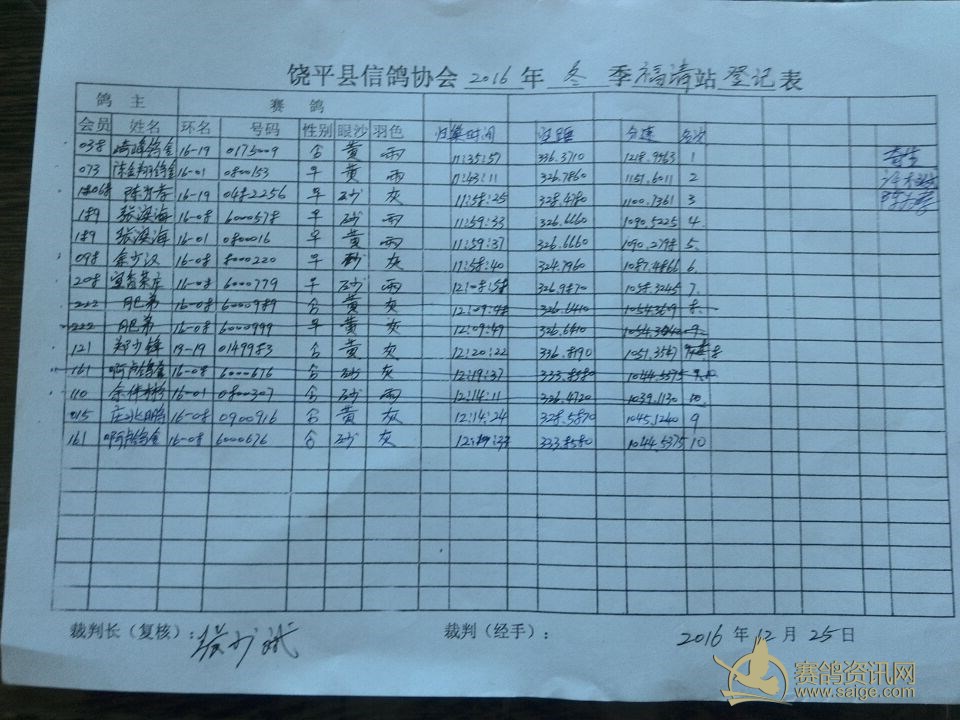 饶平县信鸽协会 2016 年 冬 季 福清 站 登记 表
鸽主 赛鸽
会员 姓名 环名 号码 性别 眼沙 羽色 归巢时间 空距 分速 名次
038 16-19 0175009 合 黄 雨 11:35:57 336.3710 1218.9963 1
073 16-01 0800153 早 黄 雨 11:43:11 326.7860 1151.6011 2
16-19 0482256 早 砂 灰 11:58:25 328.4980 1100.7361 3
189 张滨海 16-08 6000578 早 砂 雨 11:59:33 326.6660 1090.5225 4.
189 张滨海 16-01 0800016 早 黄 雨 11:59:37 326.6660 1090.2798 5.
098 余少汉 16-08 8000220 早 砂 灰 11:58:40 324.7960 1087.4866 6.
208 16-08 6000779 早 砂 雨 12:08:58 326.9870 1058.3245 7.
222 肥弟 16-08 6000989 合 黄 灰 326.6410 8.
222 肥弟 16-08 6000999 早 黄 灰 12:09:49 326.6410 9
121 郑少锋 19-19 0149983 合 黄 灰 12:20:22 336.8190 1051.3567 8
161 16-08 6000676 合 砂 灰 12:19:37 333.8580 1044.5375
110 16-01 0800307 合 砂 雨 12:14:11 326.4720 1039.1130 10.
015 16-08 0900916 合 黄 灰 12:14:24 328.5870 1045.1240 9
161 16-08 6000676 合 砂 灰 333.8580 1044.5375 10
裁判长（复核）： 裁判（经手）： 2016 年 12 月 25 日
赛鸽资讯网
www.saige.com